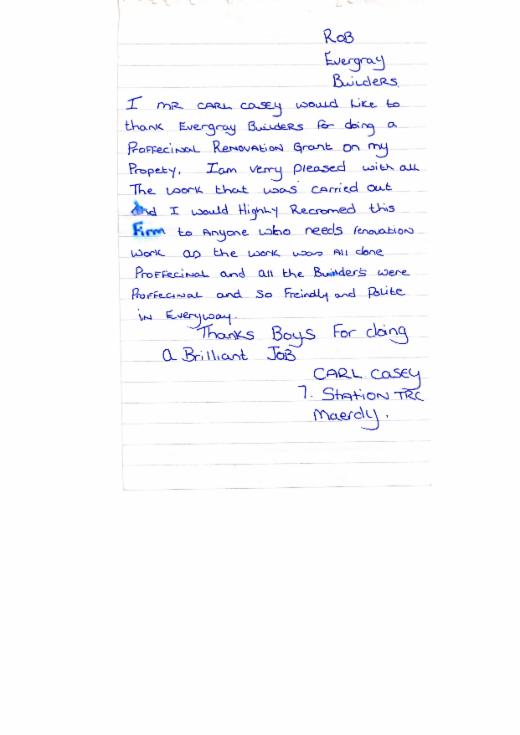 ROB
Evergray
Builders
I MR CARL CASEY would Like to
thank Evergray Builders for doing a
Proffecinal Renovation Grant on my
Propety. I am verry pleased with all
The work that was carried out
And I would Highly Recromed this
Firm to Anyone who needs renovation
work as the work was All done
Proffecinal and all the Builders were
Proffecinal and so Freindly and Polite
in Everyway.
Thanks Boys For doing
a Brilliant JOB
CARL CASEY
7. Station TRC
Maerdy.